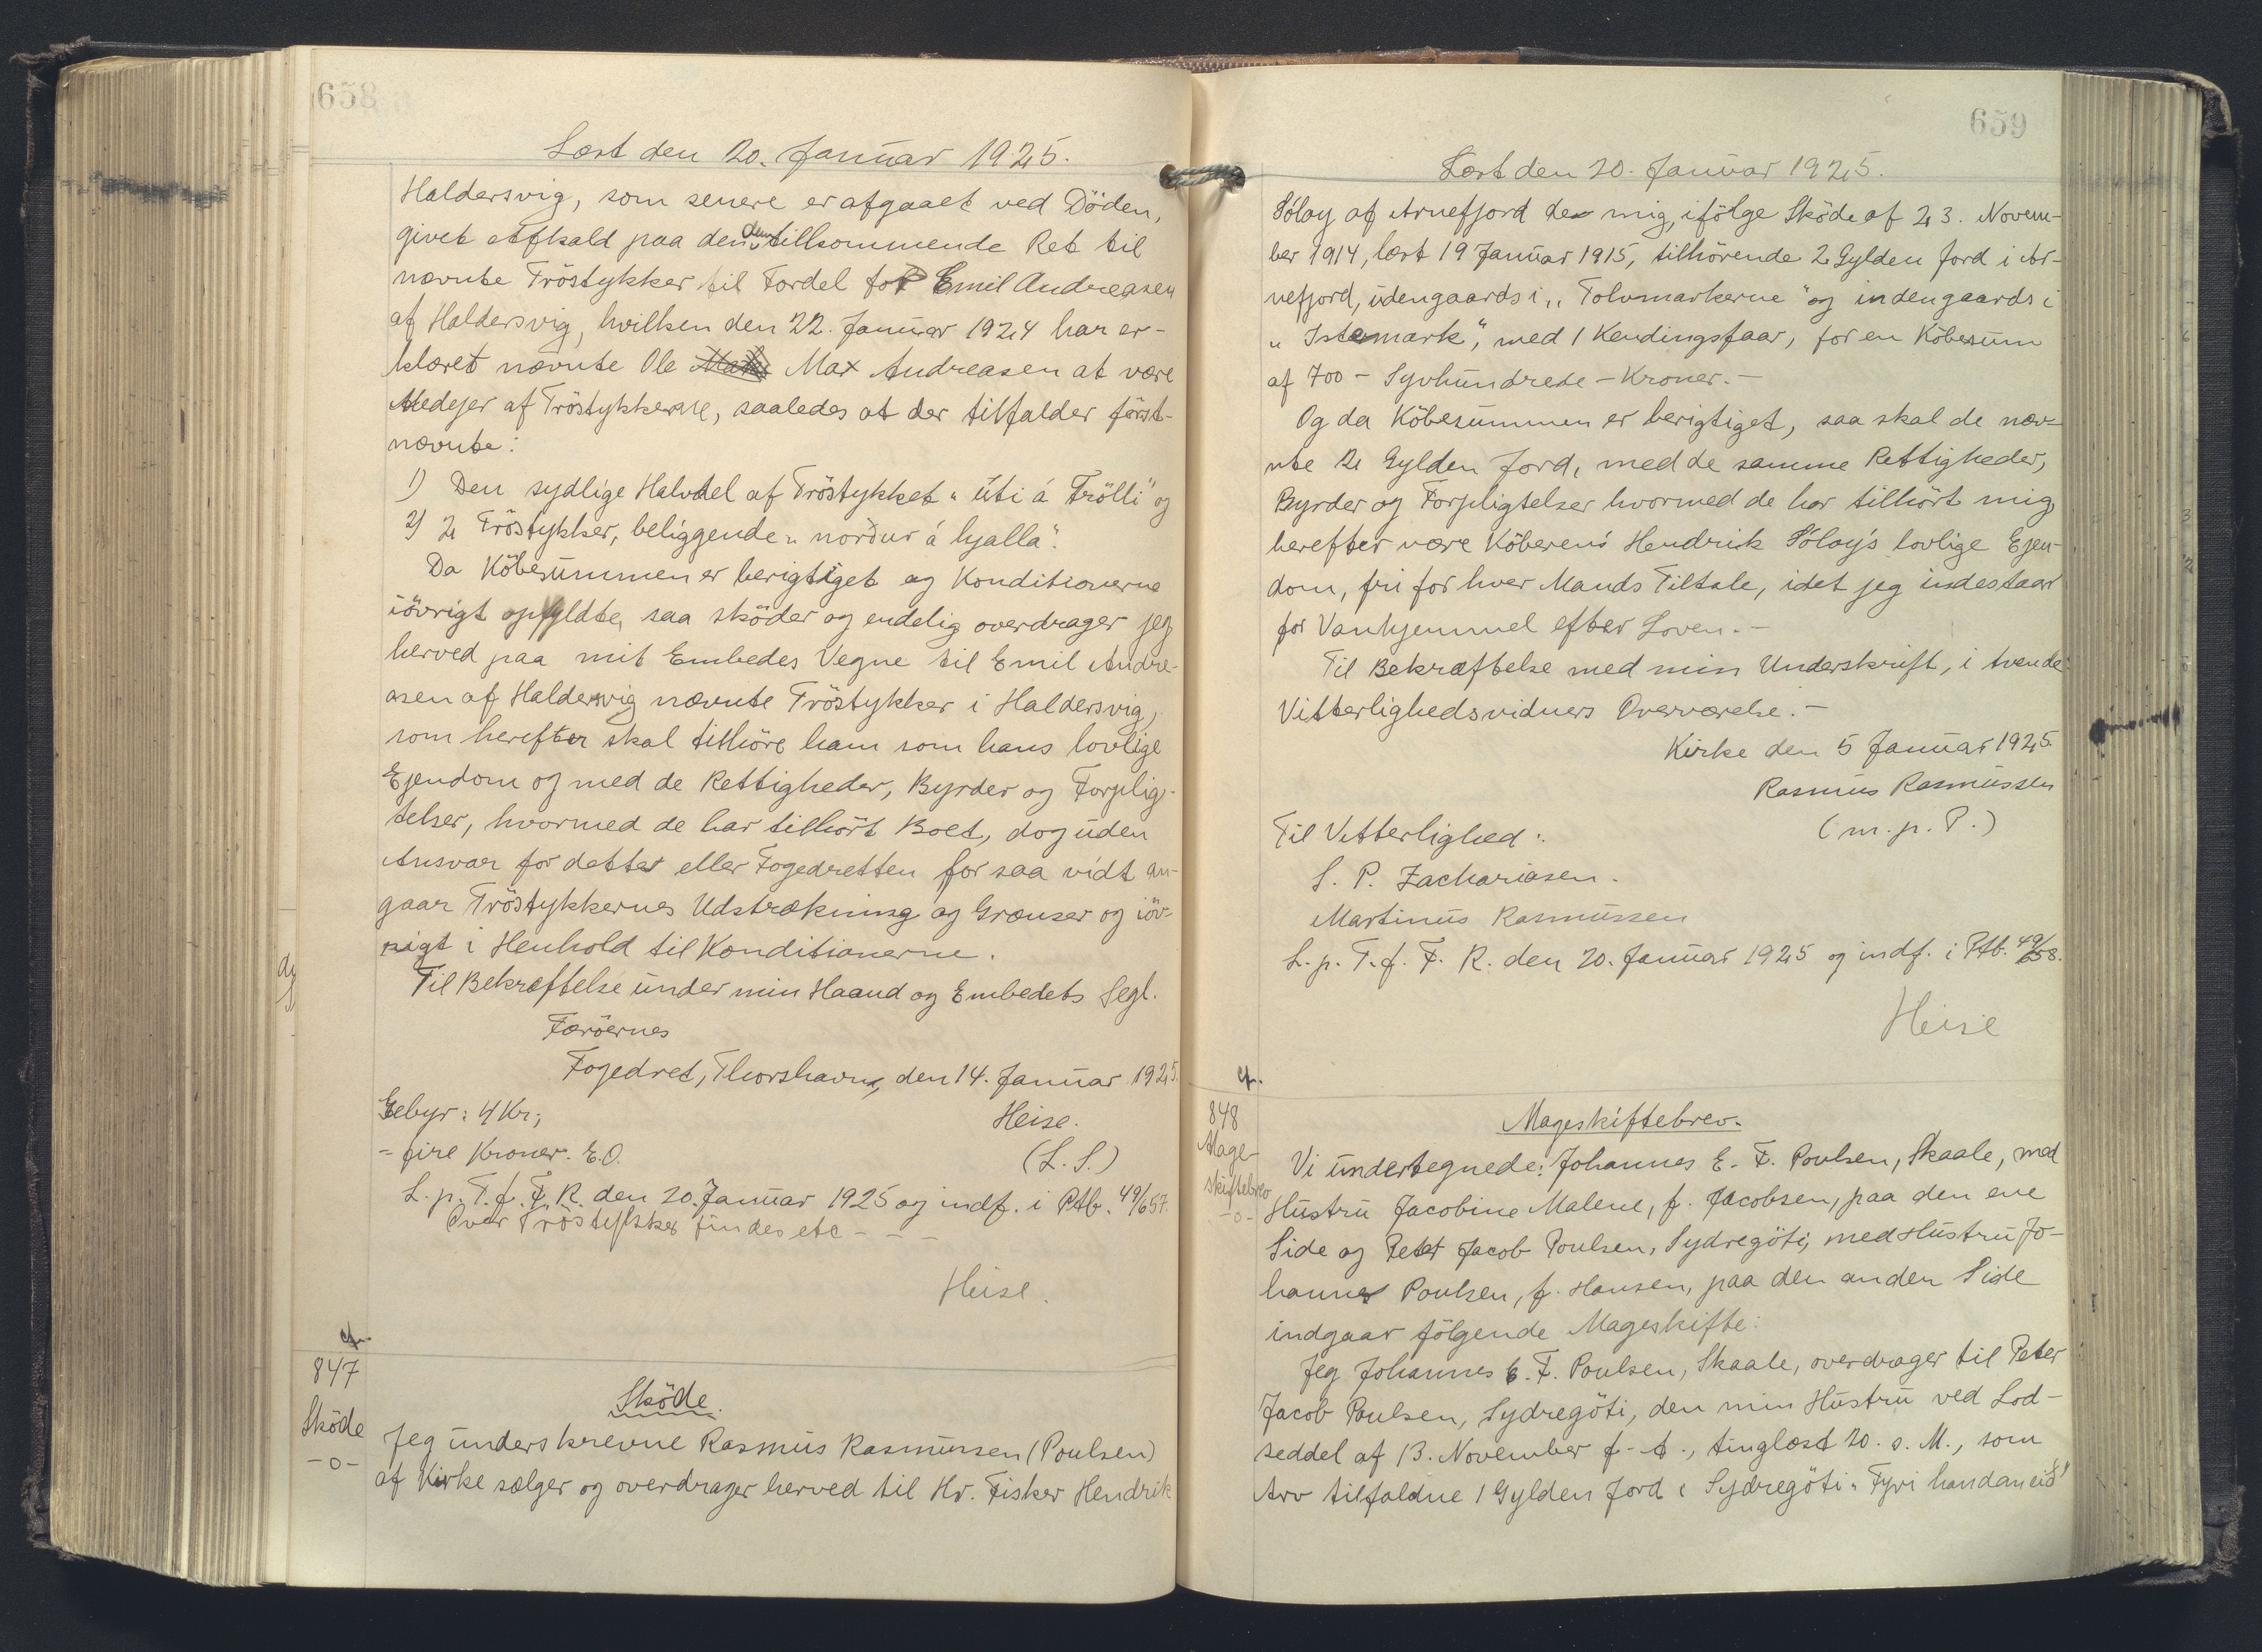 658
Læst den 20. Januar 1925.
Haldersvig, som senere er afgaaet ved Döden,
givet Afkald paa den dem tilkommende Ret til
nævnte Tröstykker til Fordel for Emil Andreasen
af Haldersvig, hvilken den 22. Januar 1924 har er-
klæret nævnte Ole Max Andreasen at være
Medejer af Tröstykkerne, saaledes at der tilfalder först-
nævnte:
1) Den sydlige Halvdel af Tröstykket „úti á Trölli" og
2) 2 Tröstykker, beliggende „norður á hjalla".
Da Köbesummen er berigtiget og Konditionerne
iövrigt opfyldte, saa sköder og endelig overdrager jeg
herved paa mit Embedes Vegne til Emil Andre-
asen af Haldersvig nævnte Tröstykker i Haldersvig,
som herefter skal tilhöre ham som hans lovlige
Ejendom og med de Rettigheder, Byrder og Forplig-
telser, hvormed de har tilhört Boet, dog uden
Ansvar for dette eller Fogedretten for saa vidt an-
gaar Tröstykkernes Udstrækning og Grænser og iöv-
rigt i Henhold til Konditionerne.
Til Bekræftelse under min Haand og Embedets Segl.
Færöernes
Fogedret, Thorshavn, den 14. Januar 1925.
Gebyr: 4 Kr;
Heise.
- fire Kroner. E.O.
(L. S.)
L. p. T. f. F. R. den 20. Januar 1925 og indf. i Ptb. 49/657.
Over Tröstykker findes etc - - -
Heise.
cfr.
847
Sköde
-o-
Sköde.
Jeg underskrevne Rasmus Rasmussen (Poulsen)
af Kirke sælger og overdrager herved til Hr. Fisker Hendrik
659
Læst den 20. Januar 1925.
Sóloy af Arnefjord de mig, ifölge Sköde af 23. Novem-
ber 1914, læst 19 Januar 1915, tilhörende 2 Gylden Jord i Ar-
nefjord, udengaards i „Tolvmarkerne" og indengaards i
„Istemark", med 1 Kendingsfaar, for en Köbesum
af 700 - Syvhundrede - Kroner. -
Og da Köbesummen er berigtiget, saa skal de næv-
nte 2 Gylden Jord, med de samme Rettigheder,
Byrder og Forpligtelser hvormed de har tilhört mig,
herefter være Köberens Hendrik Sóloy's lovlige Ejen-
dom, fri for hver Mands Tiltale, idet jeg indestaar
for Vanhjemmel efter Loven. -
Til Bekræftelse med min Underskrift, i tvende
Vitterlighedsvidners Overværelse. -
Kirke den 5 Januar 1925.
Rasmus Rasmussen
(m. p. P.)
Til Vitterlighed:
S. P. Zachariasen.
Martinus Rasmussen
L. p. T. f. F. R. den 20. Januar 1925 og indf. i Ptb. 49/658.
Heise
cfr.
848
Mage-
skiftebrev
-o-
Mageskiftebrev.
Vi undertegnede: Johannes E. F. Poulsen, Skaale, med
Hustru Jacobine Malene, f. Jacobsen, paa den ene
Side og Peter Jacob Poulsen, Sydregöti, med Hustru Jo-
hanne Poulsen, f. Hansen, paa den anden Side
indgaar fölgende Mageskifte:
Jeg Johannes E. F. Poulsen, Skaale, overdrager til Peter
Jacob Poulsen, Sydregöti, den min Hustru ved Lod-
seddel af 13. November f. A., tinglæst 20. s. M., som
Arv tilfaldne 1 Gylden Jord i Sydregöti „Fyri handan eið"